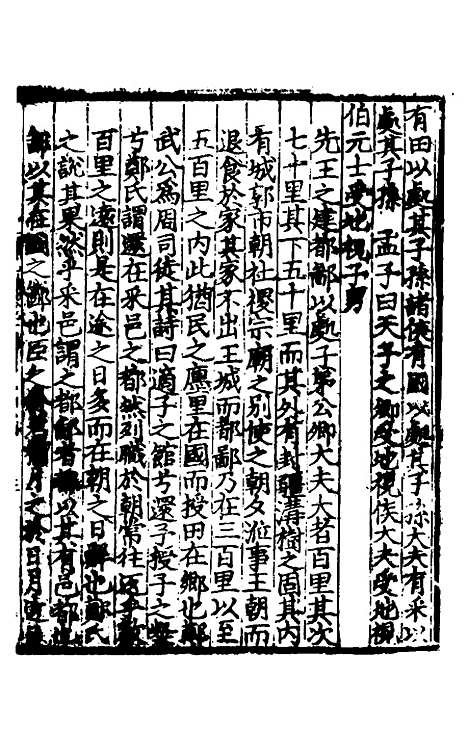 有田以處其子孫諸侯有國以處其子孫大夫有采以
處其子孫　孟子曰天子之卿受地視侯大夫受地視
伯元士受地視子男
先王之建都鄙以處子弟公卿大夫大者百里其次
七十里其下五十里而其外有封疆溝樹之固其内
有城郭市朝社稷宗廟之别使之朝夕涖事王朝而
退食於家其家不出王城而都鄙乃在三百里以至
五百里之内此猶民之廛里在國而授田在鄉也鄭
武公爲周司徒其詩曰適子之館兮還予授子之粲
兮鄭氏謂還在采邑之都然列職於朝常往反乎數
百里之遠則是在途之日多而在朝之日鮮也鄭氏
之說其果然乎采邑謂之都鄙者以其有邑都
鄙以其在國之鄙也臣之月之於日月遠